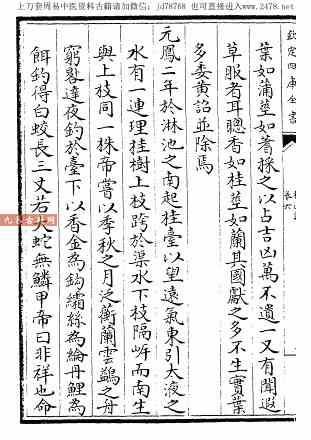 上万套周易中医资料古籍请加微信：jd78768 也可以打开www.2478.net
欽定四庫全書
卷六
葉如蒲莖如蓍採之以占吉凶萬不遺一又有聞遐
草服者耳聰香如桂莖如蘭其國獻之多不生實葉
多委黃詔並除焉
元鳳二年於淋池之南起桂臺以望遠氣東引大液之
水有一連理桂樹上枝跨於渠水下枝隔岸而南生
與上枝同一株帝嘗以季秋之月泛蘅蘭雲鷁之舟
窮晷達夜釣於臺下以香金為鈎絲為綸丹鯉為
餌釣得白蛟長三丈若大蛇無鱗甲帝曰非祥也命